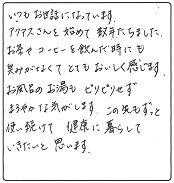 いつもお世話になっています。
アクアスさんを始めて数年たちました。
お茶やコーヒーを飲んだ時にも
臭みがなくて、とてもおいしく感じます。
お風呂のお湯も ピリピリせず
まろやかな気がします。この先もずっと
使い続けて 健康に暮らして
いきたいと 思います。